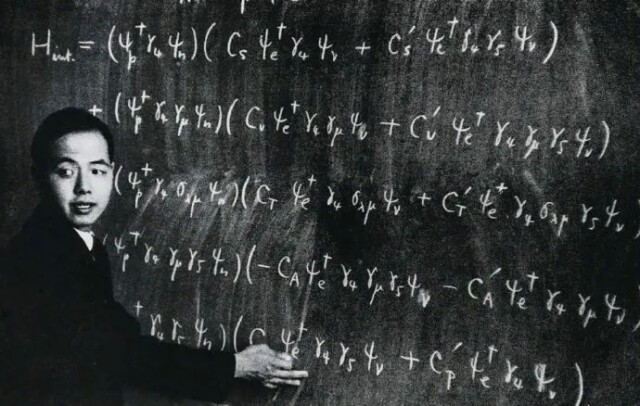 H_int. = (ψ_p† γ_4 ψ_n)( C_S ψ_e† γ_4 ψ_ν + C_S′ ψ_e† γ_4 γ_5 ψ_ν )
+ (ψ_p† γ_4 γ_μ ψ_n)( C_V ψ_e† γ_4 γ_μ ψ_ν + C_V′ ψ_e† γ_4 γ_μ γ_5 ψ_ν )
(ψ_p† γ_4 σ_λμ ψ_n)( C_T ψ_e† γ_4 σ_λμ ψ_ν + C_T′ ψ_e† γ_4 σ_λμ γ_5 ψ_ν )
ψ_p† γ_4 γ_μ γ_5 ψ_n)( -C_A ψ_e† γ_4 γ_μ γ_5 ψ_ν - C_A′ ψ_e† γ_4 γ_μ ψ_ν
† γ_4 γ_5 ψ_n)( C ψ_e† γ_4 γ_5 ψ_ν + C_P′ ψ_e† γ_4 ψ_ν )